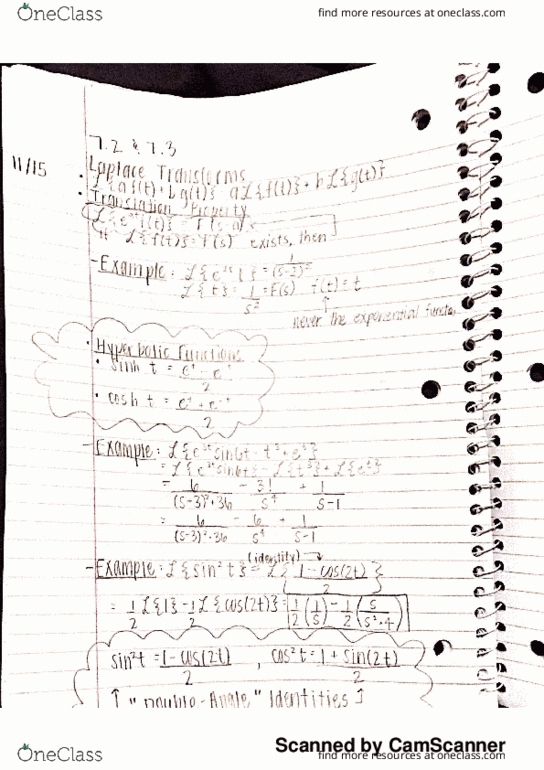 OneClass
find more resources at oneclass.com
7.2 & 7.3
11/15
Laplace Transforms
ℒ{af(t)+bg(t)} aℒ{f(t)}+bℒ{g(t)}
• Translation Property
If ℒ{f(t)}=F(s) exists, then
- Example: ℒ{e²ᵗt}=1/(s-2)²
ℒ{t}=1/s²=F(s) f(t)=t
↑
never the exponential
• Hyperbolic Functions
• sinh t = (eᵗ-e⁻ᵗ)/2
• cosh t = (eᵗ+e⁻ᵗ)/2
- Example: ℒ{e³ᵗsin6t-t³+eᵗ}
=ℒ{e³ᵗsin6t}-ℒ{t³}+ℒ{eᵗ}
= 6/((s-3)²+36) - 3!/s⁴ + 1/(s-1)
= 6/((s-3)²+36) - 6/s⁴ + 1/(s-1)
(identity) →
- Example: ℒ{sin²t}=ℒ{(1-cos(2t))/2}
= 1/2 ℒ{1}-1/2 ℒ{cos(2t)}= 1/2(1/s)-1/2(s/(s²+4))
sin²t=(1-cos(2t))/2 , cos²t=(1+sin(2t))/2
↑ "Double-Angle" Identities ↑
OneClass
Scanned by CamScanner
find more resources at oneclass.com